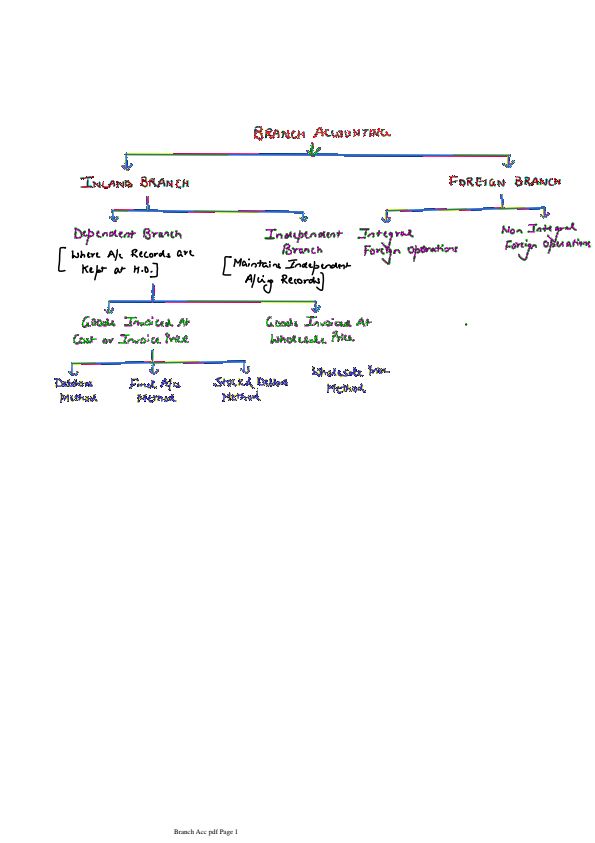 BRANCH ACCOUNTING
INLAND BRANCH
FOREIGN BRANCH
Dependent Branch
[Where A/c Records are
Kept at H.O.]
Independent
Branch
[Maintains Independent
A/cing Records]
Integral
Foreign Operations
Non Integral
Foreign Operations
Goods Invoiced At
Cost or Invoice Price
Goods Invoiced At
Wholesale Price
Debtors
Method
Final A/cs
Method
Stock & Debtors
Method
Wholesale Price
Method
Branch Acc pdf Page 1